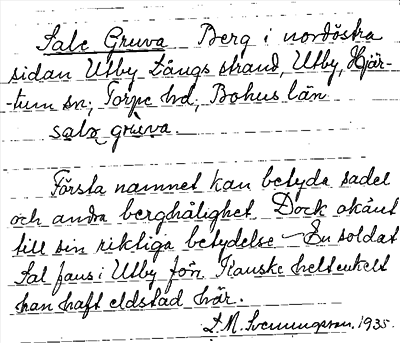 Sale Gruva Berg i nordöstra
sidan Utby Längs strand, Utby, Hjär-
-tum sn; Torpe hd, Bohus län
salα gruva.
Första namnet kan betyda sadel
och andra berghålighet Dock okänt
till sin riktiga betydelse – En soldat
Sal fans i Utby förr. Kanske helt enkelt
han haft eldstad här.
L.M. Svenungsson. 1935.